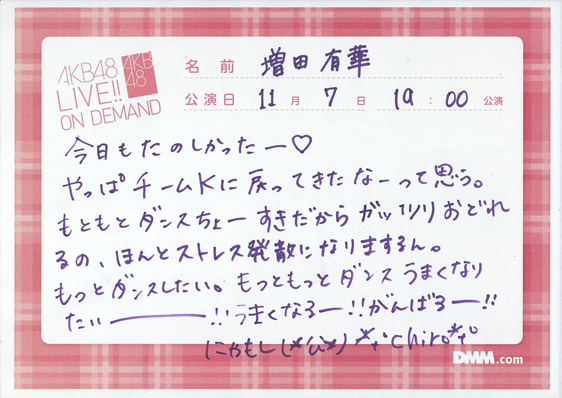 AKB48
LIVE!!
ON DEMAND
AKB
48
名前 増田有華
公演日 11月7日 19:00公演
今日もたのしかったー♡
やっぱチームKに戻ってきたなーって思う。
もともとダンスちょーすきだからガッツリおどれ
るの、ほんとストレス発散になりまするん。
もっとダンスしたい。もっともっとダンスうまくなり
たいー!!うまくなるー!!がんばるー!!
にゃもし
chiro
DMM.com